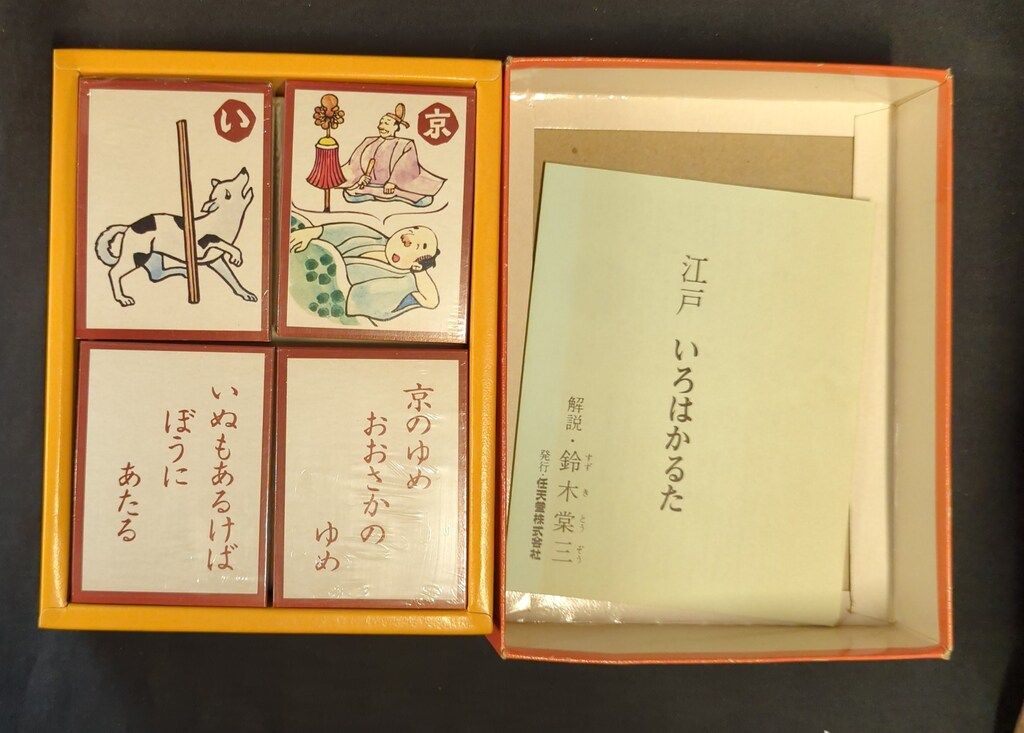 い
京
いぬもあるけば
ぼうに
あたる
京のゆめ
おおさかの
ゆめ
江戸 いろはかるた
解説・鈴木棠三
すずきとうぞう
発行・任天堂株式会社